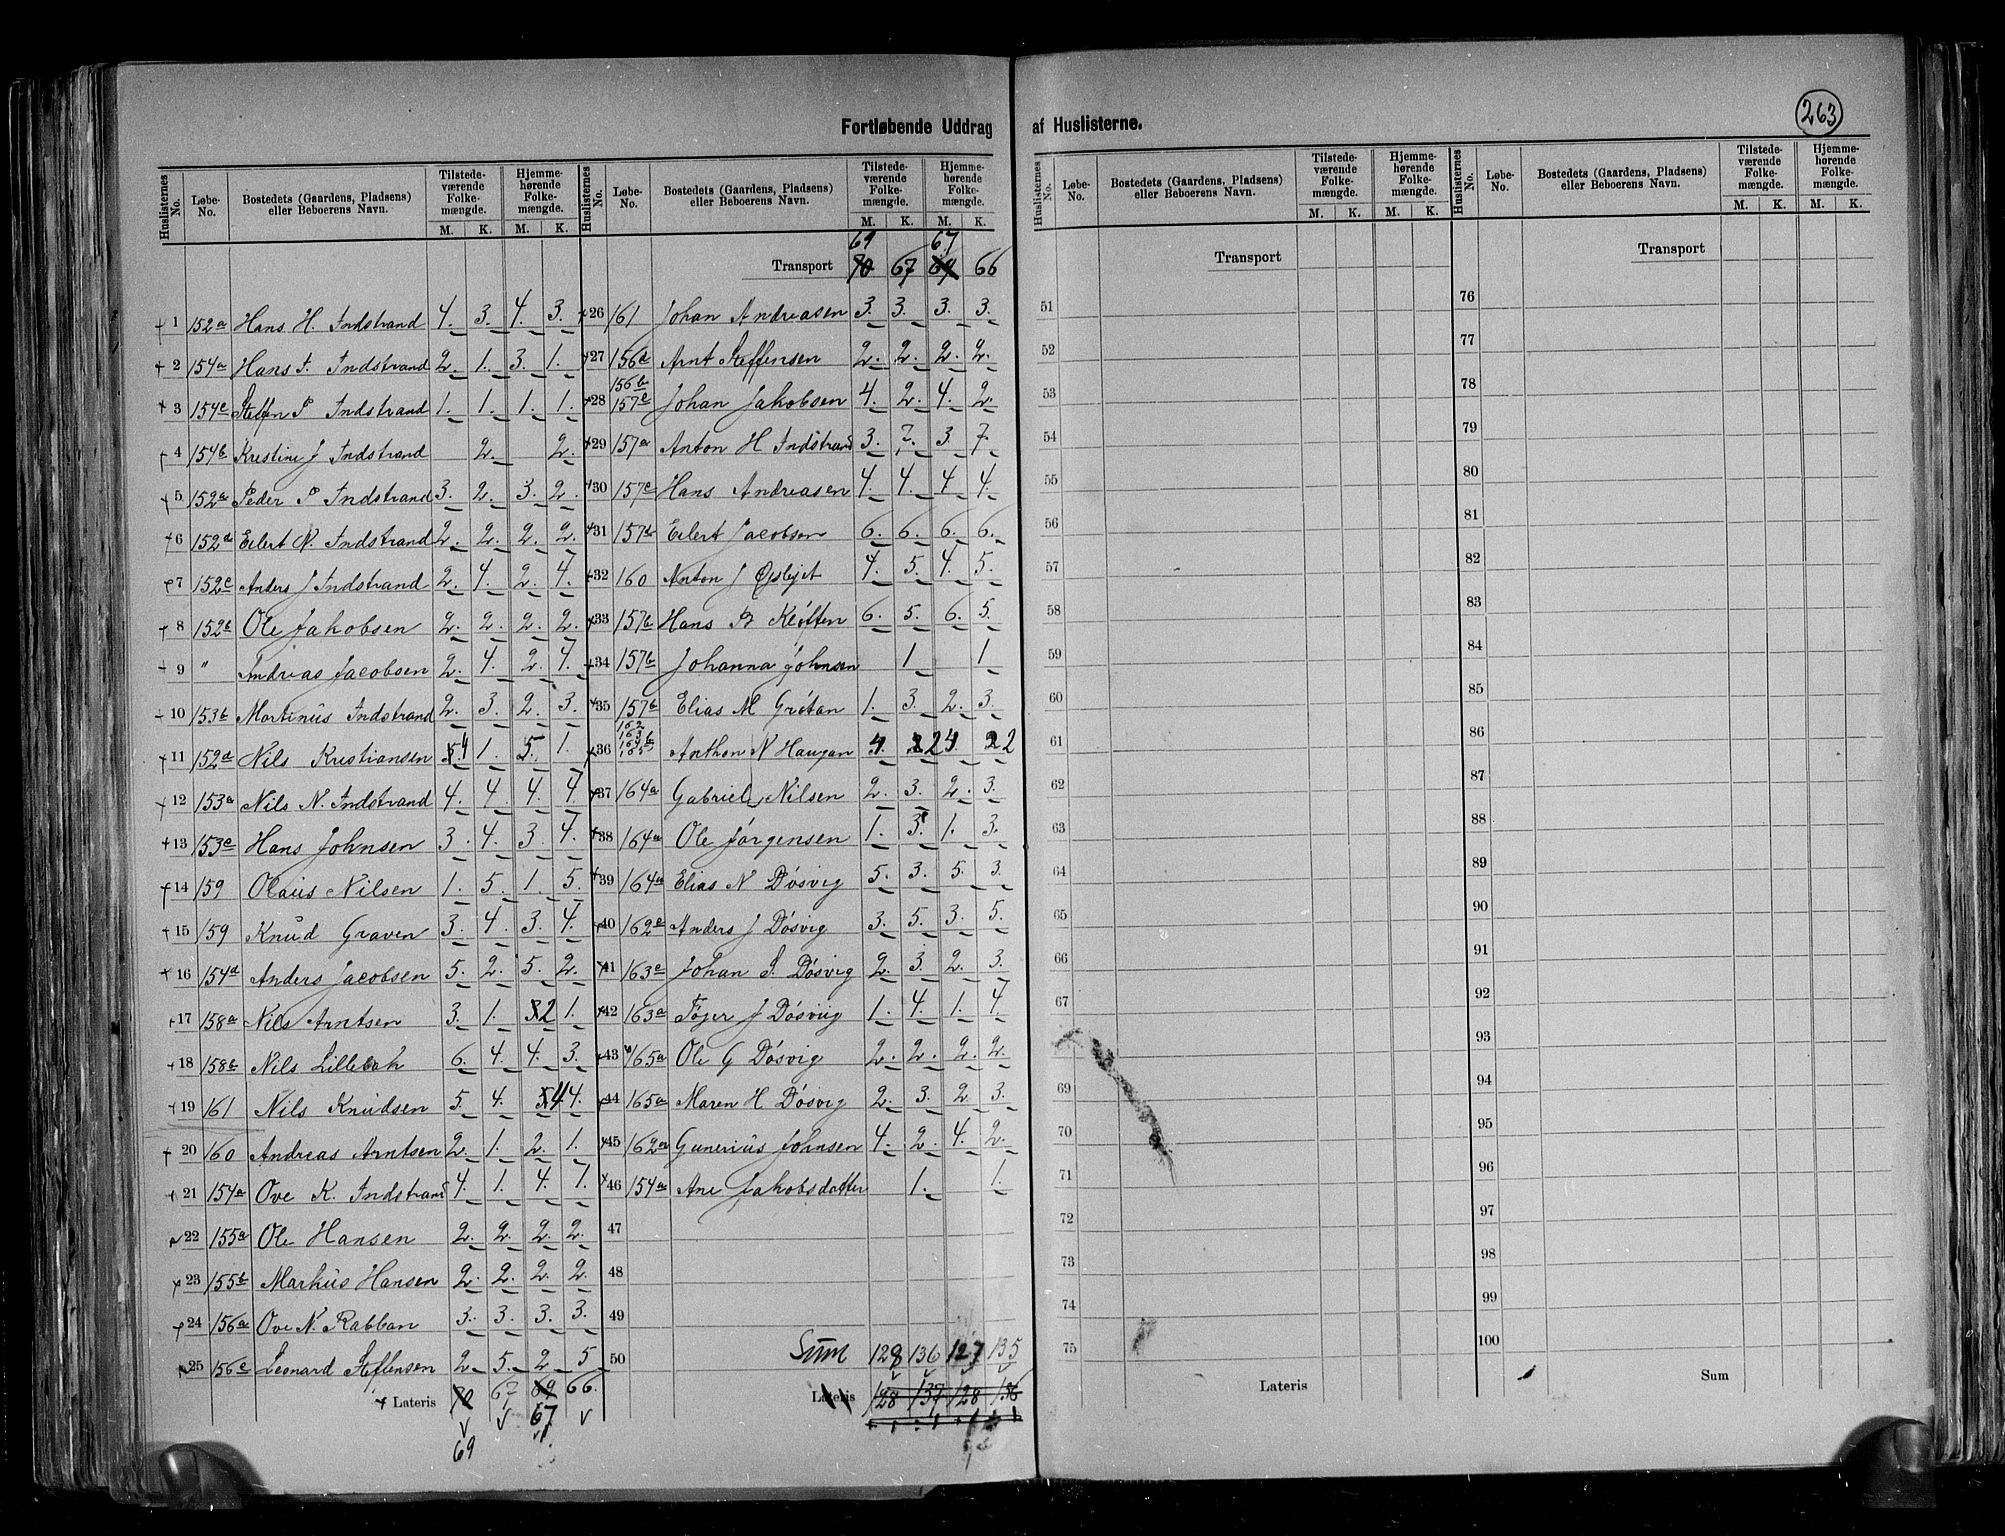 263
Fortløbende Uddrag af Huslisterne.
Huslisternes No. Løbe-No. Bostedets (Gaardens, Pladsens) eller Beboerens Navn. Tilstedeværende Folkemængde. Hjemmehørende Folkemængde.
M. K. M. K.
1 152a Hans H. Indstrand 4. 3. 4. 3.
2 154a Hans P. Indstrand 2. 1. 3. 1.
3 154c Steffen P Indstrand 1. 1. 1. 1.
4 154b Kristine J Indstrand 2. 2.
5 152a Peder P Indstrand 3. 2. 3. 2.
6 152d Eilert N. Indstrand 2. 2. 2. 2.
7 152c Anders J Indstrand 2. 4. 2. 4.
8 152b Ole Jakobsen 2. 2. 2. 2.
9 " Andreas Jacobsen 2. 4. 2. 4.
10 153b Martinus Indstrand 2. 3. 2. 3.
11 152d Nils Kristiansen 4 1. 5. 1.
12 153a Nils N. Indstrand 4. 4. 4. 4.
13 153c Hans Johnsen 3. 4. 3. 4.
14 159 Olaus Nilsen 1. 5. 1. 5.
15 159 Knud Graven 3. 4. 3. 4.
16 154d Anders Jacobsen 5. 2. 5. 2.
17 158a Nils Arntsen 3. 1. 2 1.
18 158b Nils Lillebak 6. 4. 4. 3.
19 161 Nils Knudsen 5. 4. 4 4.
20 160 Andreas Arntsen 2. 1. 2. 1.
21 154a Ove K. Indstrand 4. 1. 4. 1.
22 155a Ole Hansen 2. 2. 2. 2.
23 155b Markus Hansen 2. 2. 2. 2.
24 156a Ove N. Rabban 3. 3. 3. 3.
25 156c Leonard Steffensen 2. 5. 2. 5
Lateris 70 67 69 66.
67
69
Huslisternes No. Løbe-No. Bostedets (Gaardens, Pladsens) eller Beboerens Navn. Tilstedeværende Folkemængde. Hjemmehørende Folkemængde.
M. K. M. K.
69 67
Transport 70 67 69 66
26 161 Johan Andreasen 3. 3. 3. 3.
27 156d Arnt Steffensen 2. 2. 2. 2.
28 156b 157c Johan Jakobsen 4. 2. 4. 2.
29 157a Anton H Indstrand 3. 7. 3. 7.
30 157c Hans Andreasen 4. 4. 4. 4.
31 157d Eilert Jacobsen 6. 6. 6. 6.
32 160 Anton J 4. 5. 4. 5.
33 157b Hans P Kløften 6. 5. 6. 5.
34 157b Johanna Johnsen 1 1
35 157b Elias M Grøtan 1. 3. 2. 3.
36 162 163 164b 165 Anthon N Haugan 4. 2 4. 2
37 164a Gabriel Nilsen 2. 3. 2. 3.
38 164a Ole Jørgensen 1. 3. 1. 3.
39 164a Elias N Døsvig 5. 3. 5. 3.
40 162c Anders J Døsvig 3. 5. 3. 5.
41 163c Johan S. Døsvig 2. 3. 2. 3.
42 163a Tøger J Døsvig 1. 4. 1. 4.
43 165a Ole G Døsvig 2. 2. 2. 2.
44 165a Maren H Døsvig 2. 3. 2. 3.
45 162a Gunerius Johnsen 4. 2. 4. 2.
46 154a Ane Jakobsdatter 1. 1.
47
48
49
50 Sum 128 136 127 135
Lateris 128 137 128 136
Huslisternes No. Løbe-No. Bostedets (Gaardens, Pladsens) eller Beboerens Navn. Tilstedeværende Folkemængde. Hjemmehørende Folkemængde.
M. K. M. K.
Transport
51
52
53
54
55
56
57
58
59
60
61
62
63
64
65
66
67
69
70
71
72
73
74
75
Lateris
Huslisternes No. Løbe-No. Bostedets (Gaardens, Pladsens) eller Beboerens Navn. Tilstedeværende Folkemængde. Hjemmehørende Folkemængde.
M. K. M. K.
Transport
76
77
78
79
80
81
82
83
84
85
86
87
88
89
90
91
92
93
94
95
96
97
98
99
100
Sum